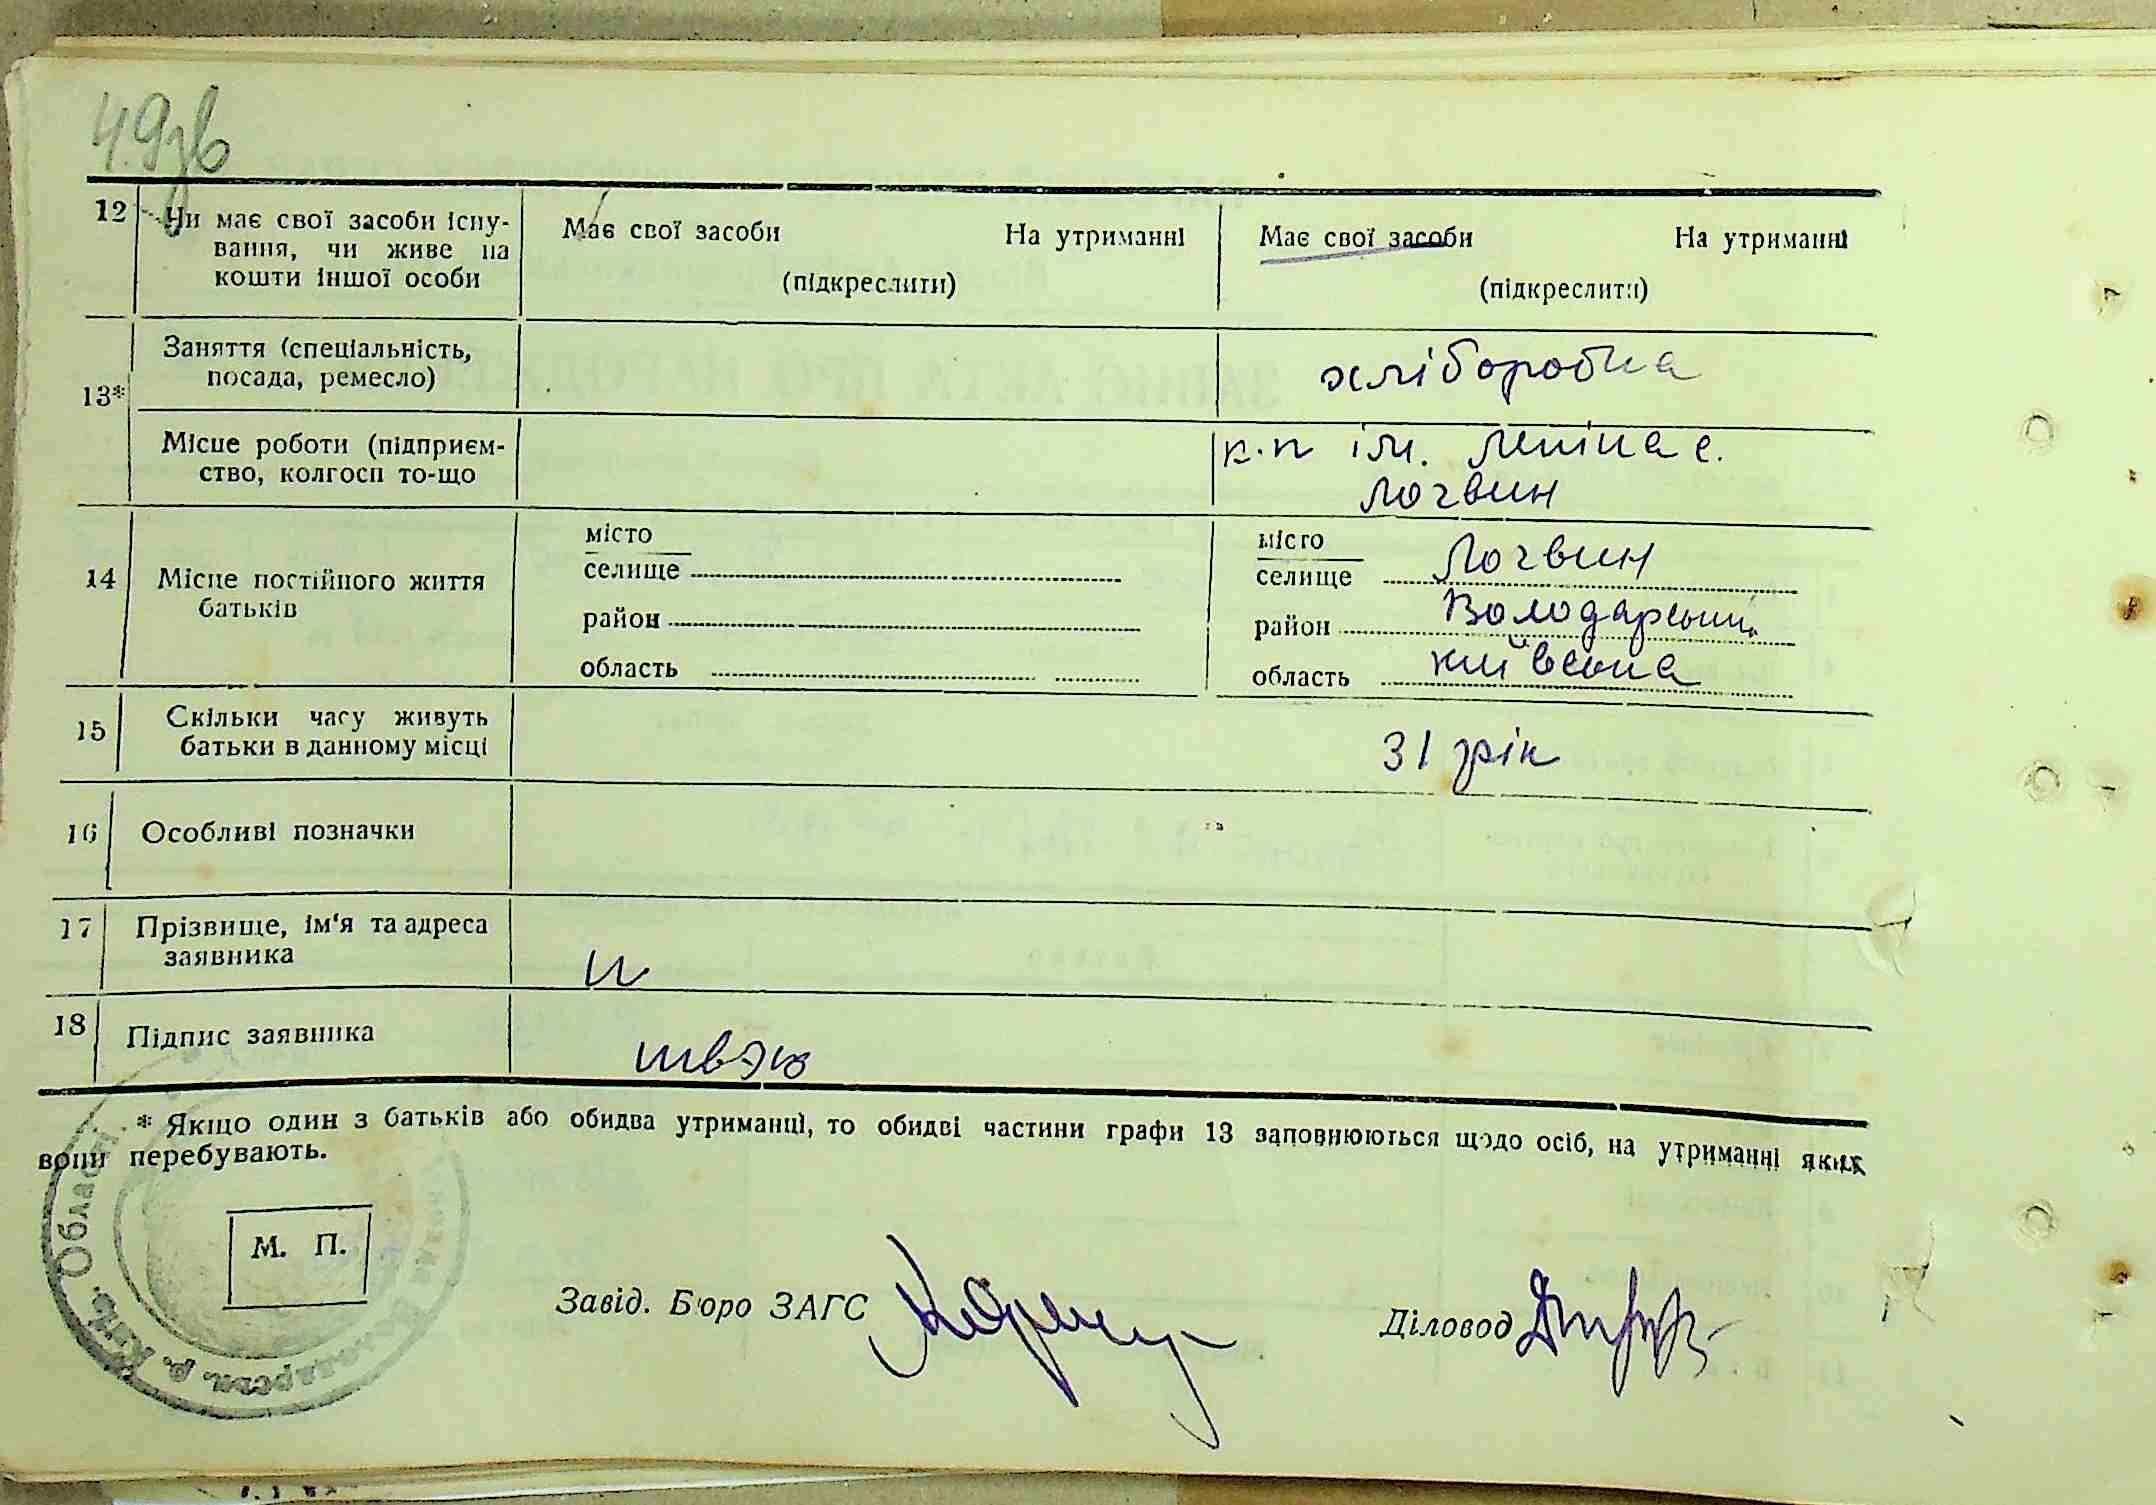 49зв
12 Чи має свої засоби існу-
вання, чи живе на
кошти іншої особи
Має свої засоби На утриманні
(підкреслити)
Має свої засоби На утриманні
(підкреслити)
13*
Заняття (спеціальність,
посада, ремесло)
хліборобка
Місце роботи (підприєм-
ство, колгосп то-що
к.п ім. Леніна с.
Логвин
14 Місце постійного життя
батьків
місто
селище
район
область
місто
селище Логвин
район Володарський
область Київська
15 Скільки часу живуть
батьки в данному місці
31 рік
16 Особливі позначки
17 Прізвище, ім'я та адреса
заявника
18 Підпис заявника
* Якщо один з батьків або обидва утриманці, то обидві частини графи 13 заповнюються щодо осіб, на утриманні яких
вони перебувають.
М. П.
Володарськ. р. Київ. Області
Завід. Бюро ЗАГС
Діловод